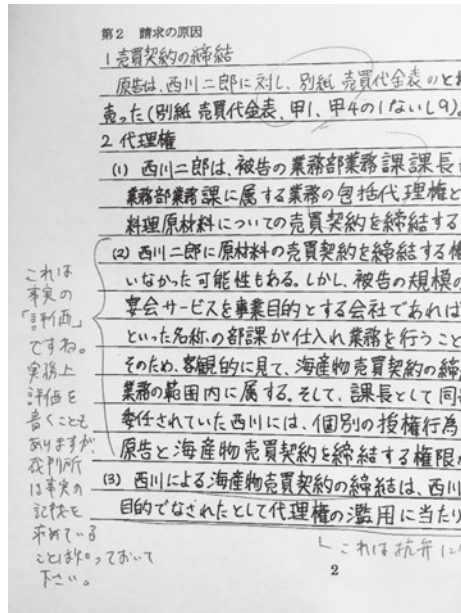 第2 請求の原因
1 売買契約の締結
原告は、西川二郎に対し、別紙 売買代金表のと
売った(別紙 売買代金表、甲1、甲4の1ないし9)。
2 代理権
(1) 西川二郎は、被告の業務部業務課課長
業務部業務課に属する業務の包括代理権と
料理原材料についての売買契約を締結する
(2) 西川二郎に原材料の売買契約を締結する権
いなかった可能性もある。しかし、被告の規模の
宴会サービスを事業目的とする会社であれば
といった名称の部課が仕入れ業務を行うこと
そのため、客観的に見て、海産物売買契約の締
業務の範囲内に属する。そして、課長として同
委任されていた西川には、個別の授権行為
原告と海産物売買契約を締結する権限が
(3) 西川による海産物売買契約の締結は、西川
目的でなされたとして代理権の濫用に当たり
これは
事実の
「評価」
ですね。
実務上
評価を
書くことも
ありますが、
裁判所
は事実の
記載を
求めている
ことは知っておいて
下さい。
これは抗弁に
2